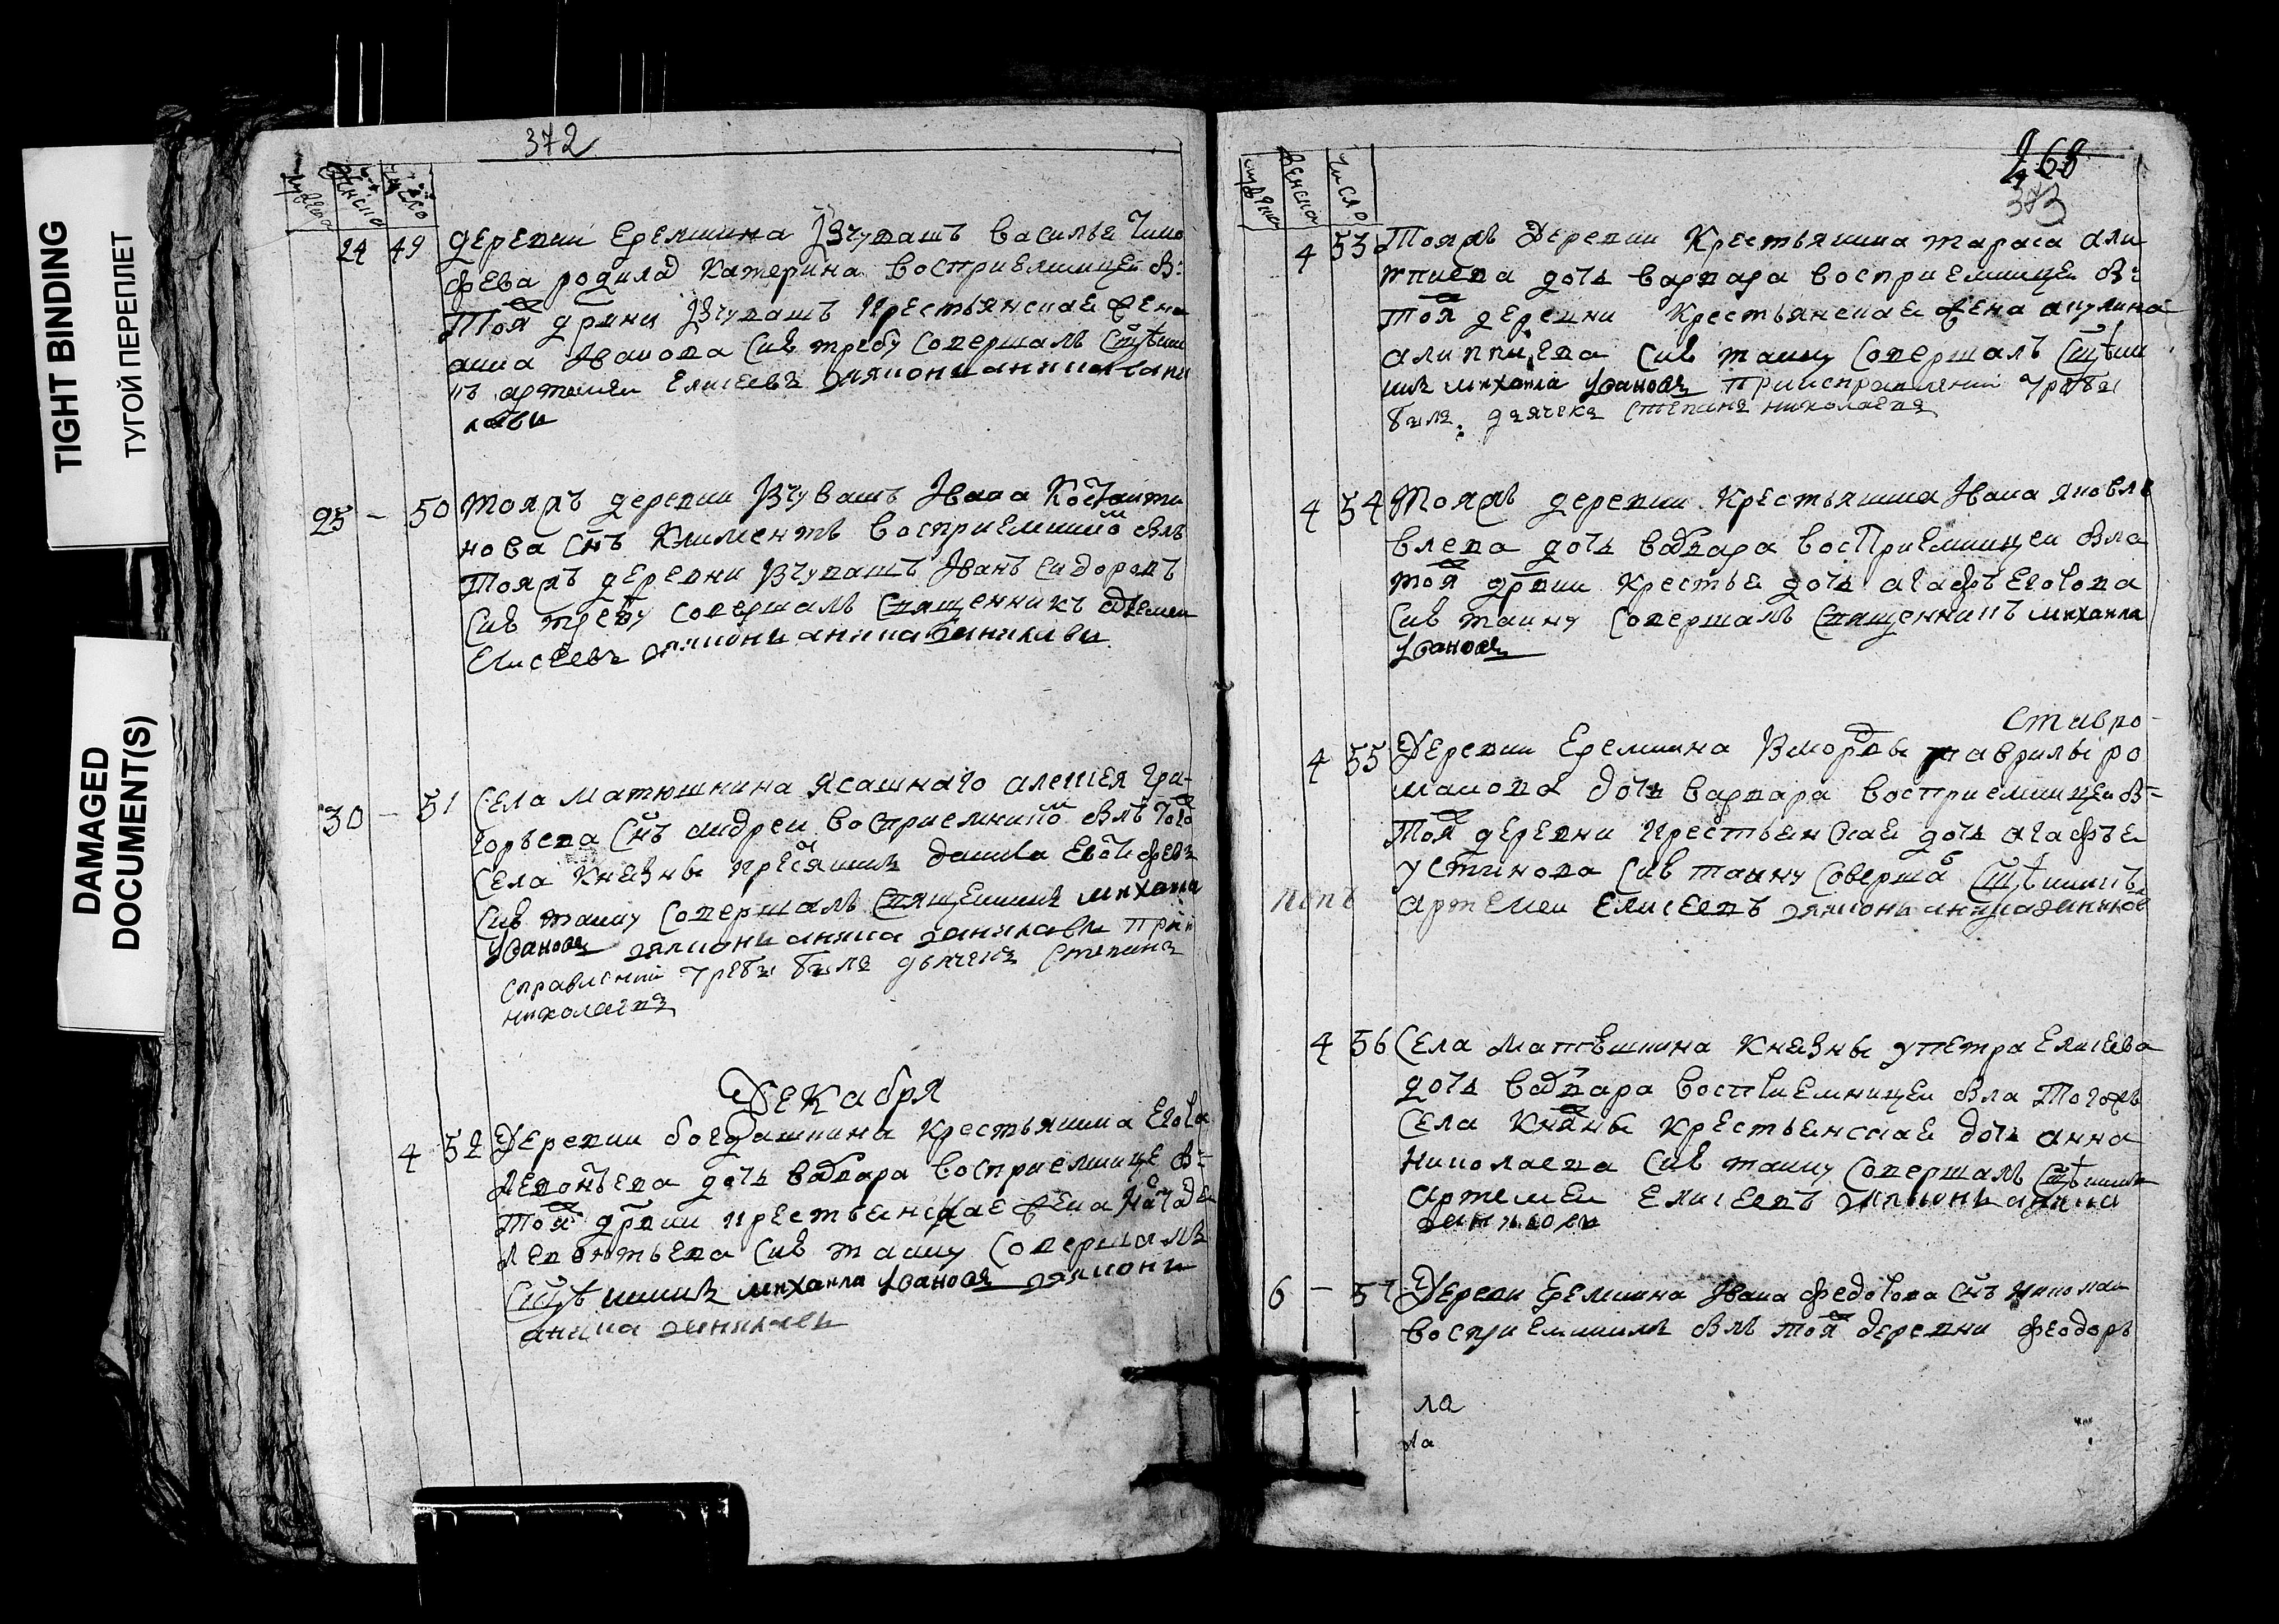 TIGHT BINDING
ТУГОЙ ПЕРЕПЛЕТ
DAMAGED
DOCUMENT(S)
372
мужеска
женска
число
24 49 деревни Еремкина Iзчувашъ Василья Тимо
фева родилас Катерина восприемницеи в:
тояж дрвни Iзчувашъ крестьянская жена
анна Iванова Сиѣ требу совершалъ Сщѣнни
къ артемеи Елисеевъ
25 - 50 тояжъ деревни Iзчувашъ Iвана Костянти
нова Снъ Климентъ восприемником былъ
тояжъ деревни Iзчувашъ Iванъ Сидоровъ
Сиѣ требу совершалъ Священникъ Артемеи
Елисеевъ дьяконъ аника даниловъ
30 - 51 Села матюшкина ясашнаго алеѯея гри-
горьева Снъ андреи восприемником былъ тогож
Села Князны крестянинъ данила
Сиѣ таину совершалъ Священникъ михаила
Iвановъ дьяконъ аника даниловъ при
справлении требы былъ дьячекъ Степанъ
николаевъ
Декабря
4 52 Деревни богдашкина крестьянина Егора
Леонтьева дочь варвара восприемнице б:
тояж дрвни крестьянская жена
Леонтьева Сиѣ таину совершалъ
Сщѣнникъ михаила Iвановъ дьяконъ
аника даниловъ
268
373
мужеска
женска
число
4 53 Тояжъ Деревни Крестьянина тараса али
мпиева дочь варвара восприемницеи б:
тояж деревни крестьянская жена акулина
алимпиева Сиѣ таину Совершалъ Сщѣнни
къ михаила Iвановъ при исправлении требы
былъ дьячекъ степанъ николаевъ
4 54 Тояжъ деревни Крестьянина Iвана яковле
влева дочь варвара восприемницеи была
тояж дрвни крестья дочь агафь Егорова
Сиѣ таину Совершалъ Священникъ михаила
Iвановъ
Ставро-
4 55 Деревни Еремкина Iзмордвы гаврилы ро
манова дочь варвара восприемницеи б=
тояж деревни крестьянская дочь агафье
устинова Сиѣ таину Совершал Сщѣнникъ
попъ артемеи Елисеевъ дьяконъ аника даниловъ
4 56 Села Матюшкина Князны у петра Елисеева
дочь варвара восприемницеи была тогожъ
Села Княны крестьянская дочь анна
николаева Сиѣ таину Совершалъ Сщѣнникъ
артемеи Елисеевъ дьяконъ аника
даниловъ
6 - 57 Деревни Еремкина Iвана федотова Снъ николаи
восприемникъ былъ тояж деревни феодоръ
ла
ла